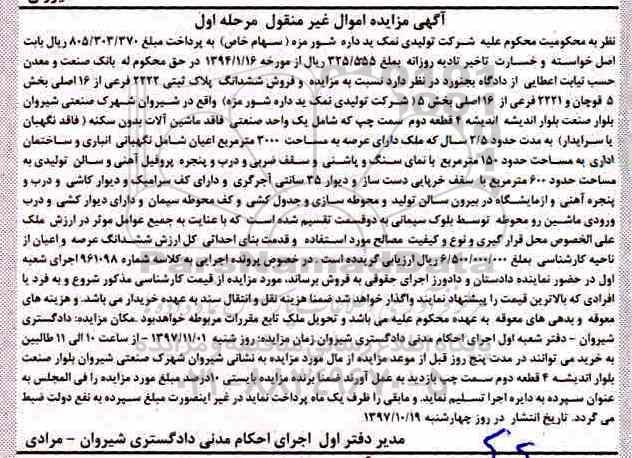 آگهی مزایده اموال غیر منقول مرحله اول
نظر به محکومیت محکوم علیه شرکت تولیدی نمک ید داره شور مزه ( سهام خاص) به پرداخت مبلغ ۸۰۵/۳۰۳/۳۷۰ ریال بابت
اصل خواسته و خسارت تاخیر تادیه روزانه بمبلغ ۳۲۵/۵۵۵ ریال از مورخه ۱۳۹۴/۱/۱۶ در حق محکوم له بانک صنعت و معدن
حسب نیابت اعطایی از دادگاه بجنورد در نظر دارد نسبت به مزایده و فروش ششدانگ پلاک ثبتی ۲۲۲۲ فرعی از ۱۶ اصلی بخش
۵ قوچان و ۲۲۲۱ فرعی از ۱۶ اصلی بخش ۵ ( شرکت تولیدی نمک ید داره شور مزه) واقع در شیروان شهرک صنعتی شیروان
بلوار صنعت بلوار اندیشه اندیشه ۴ قطعه دوم سمت چپ که شامل یک واحد صنعتی فاقد ماشین آلات بدون سکنه ( فاقد نگهبان
یا سرایدار) به مدت حدود ۲/۵ سال که ملک دارای عرصه به مساحت ۳۰۰۰ مترمربع اعیان شامل نگهبانی انباری و ساختمان
اداری به مساحت حدود ۱۵۰ مترمربع با نمای سنگ و پاشنی و سقف ضربی و درب و پنجره پروفیل آهنی و سالن تولیدی به
مساحت حدود ۶۰۰ مترمربع با سقف خرپایی دست ساز و دیوار ۳۵ سانتی آجرگری و دارای کف سرامیک و دیوار کاشی و درب و
پنجره آهنی و ازمایشگاه در بیرون سالن تولید و محوطه سازی و جدول کشی و کف محوطه سیمان و دارای دیوار کشی و درب
ورودی ماشین رو محوطه توسط بلوک سیمانی به دوقسمت تقسیم شده است که با عنایت به جمیع عوامل موثر در ارزش ملک
علی الخصوص محل قرار گیری و نوع و کیفیت مصالح مورد استفاده و قدمت بنای احداثی کل ارزش ششدانگ عرصه و اعیان از
ناحیه کارشناسی بمبلغ ۶/۵۰۰/۰۰۰/۰۰۰ ریال ارزیابی گردیده است . در خصوص پرونده اجرایی به کلاسه شماره ۹۶۱۰۹۸ اجرای شعبه
اول در حضور نماینده دادستان و دادورز اجرای حقوقی به فروش برساند، مورد مزایده از قیمت کارشناسی مذکور شروع و به فرد یا
افرادی که بالاترین قیمت را پیشنهاد نمایند واگذار خواهد شد ضمنا هزینه نقل و انتقال سند به عهده خریدار می باشد. و هزینه های
معوقه و بدهی های معوقه به عهده محکوم علیه می باشد و تحویل ملک تابع مقررات مربوطه خواهدبود .مکان مزایده: دادگستری
شیروان - دفتر شعبه اول اجرای احکام مدنی دادگستری شیروان زمان مزایده: روز شنبه ۱۳۹۷/۱۱/۰۱ -از ساعت ۱۰ الی ۱۱ طالبین
به خرید می توانند در مدت پنج روز قبل از موعد مزایده از مال مورد مزایده به نشانی شیروان شهرک صنعتی شیروان بلوار صنعت
بلوار اندیشه ۴ قطعه دوم سمت چپ بازدید به عمل آورند ضمنا برنده مزایده بایستی ۱۰درصد مبلغ مورد مزایده را فی المجلس به
عنوان سپرده به دایره اجرا تسلیم نماید. و مابقی را ظرف یک ماه پرداخت نماید در غیر اینصورت مبلغ سپرده به نفع دولت ضبط
می گردد. تاریخ انتشار در روز چهارشنبه ۱۳۹۷/۱۰/۱۹
مدیر دفتر اول اجرای احکام مدنی دادگستری شیروان - مرادی